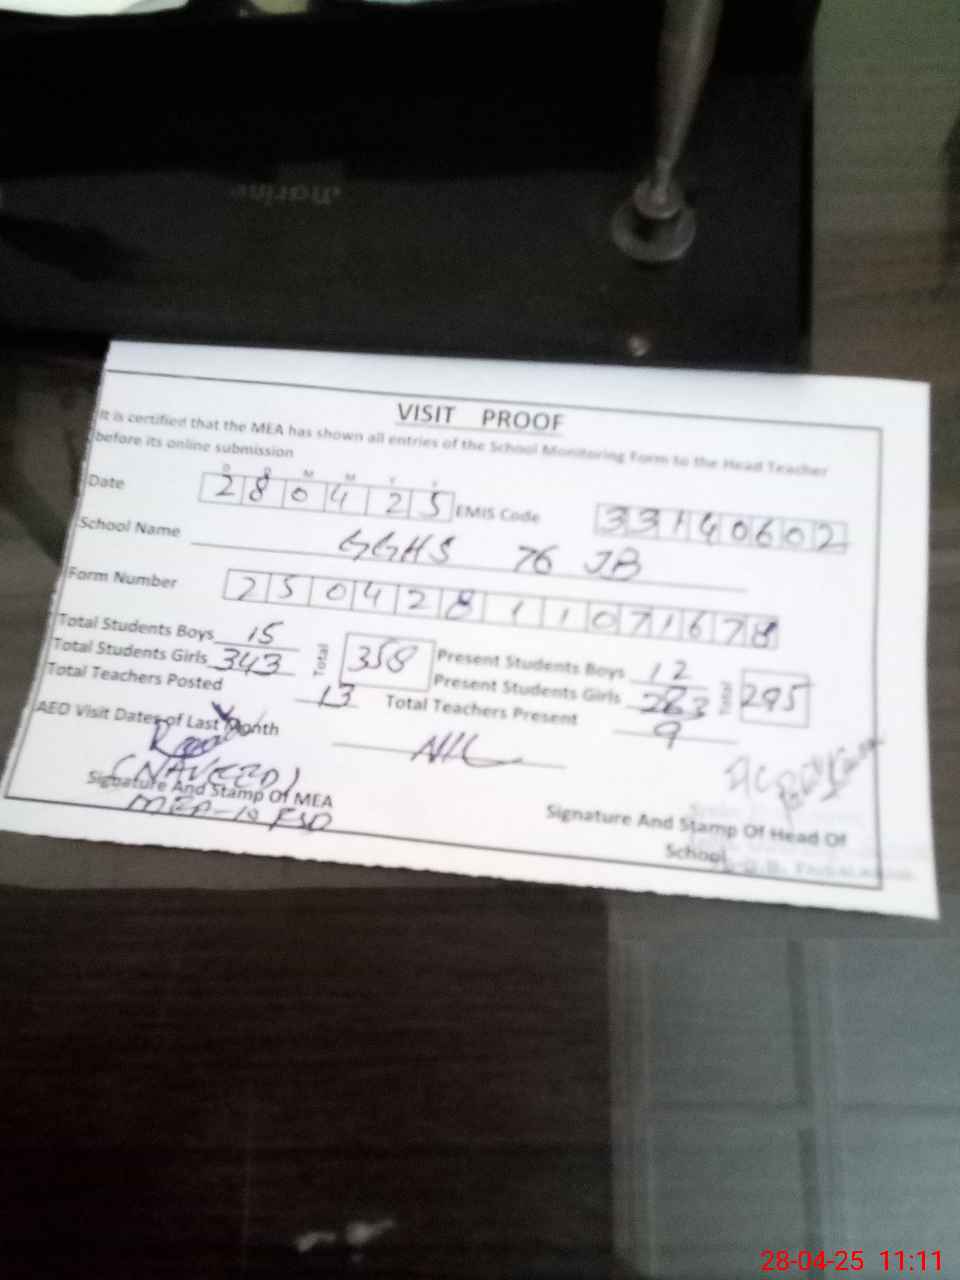 VISIT PROOF
It is certified that the MEA has shown all entries of the School Monitoring Form to the Head Teacher
before its online submission
D D M M Y Y
Date 280425 EMIS Code 33140602
School Name GGHS 76 JB
Form Number 25042811071678
Total Students Boys 15 Total 358 Present Students Boys 12 Total 295
Total Students Girls 343 Present Students Girls 283
Total Teachers Posted 13 Total Teachers Present 9
AEO Visit Dates of Last Month Nil
(NAVEED)
Signature And Stamp Of MEA
MEA-10 FSD
Signature And Stamp Of Head Of
School
28-04-25 11:11